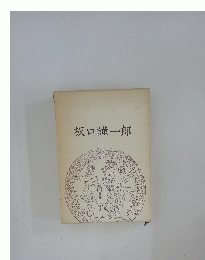 坂口謹一郎